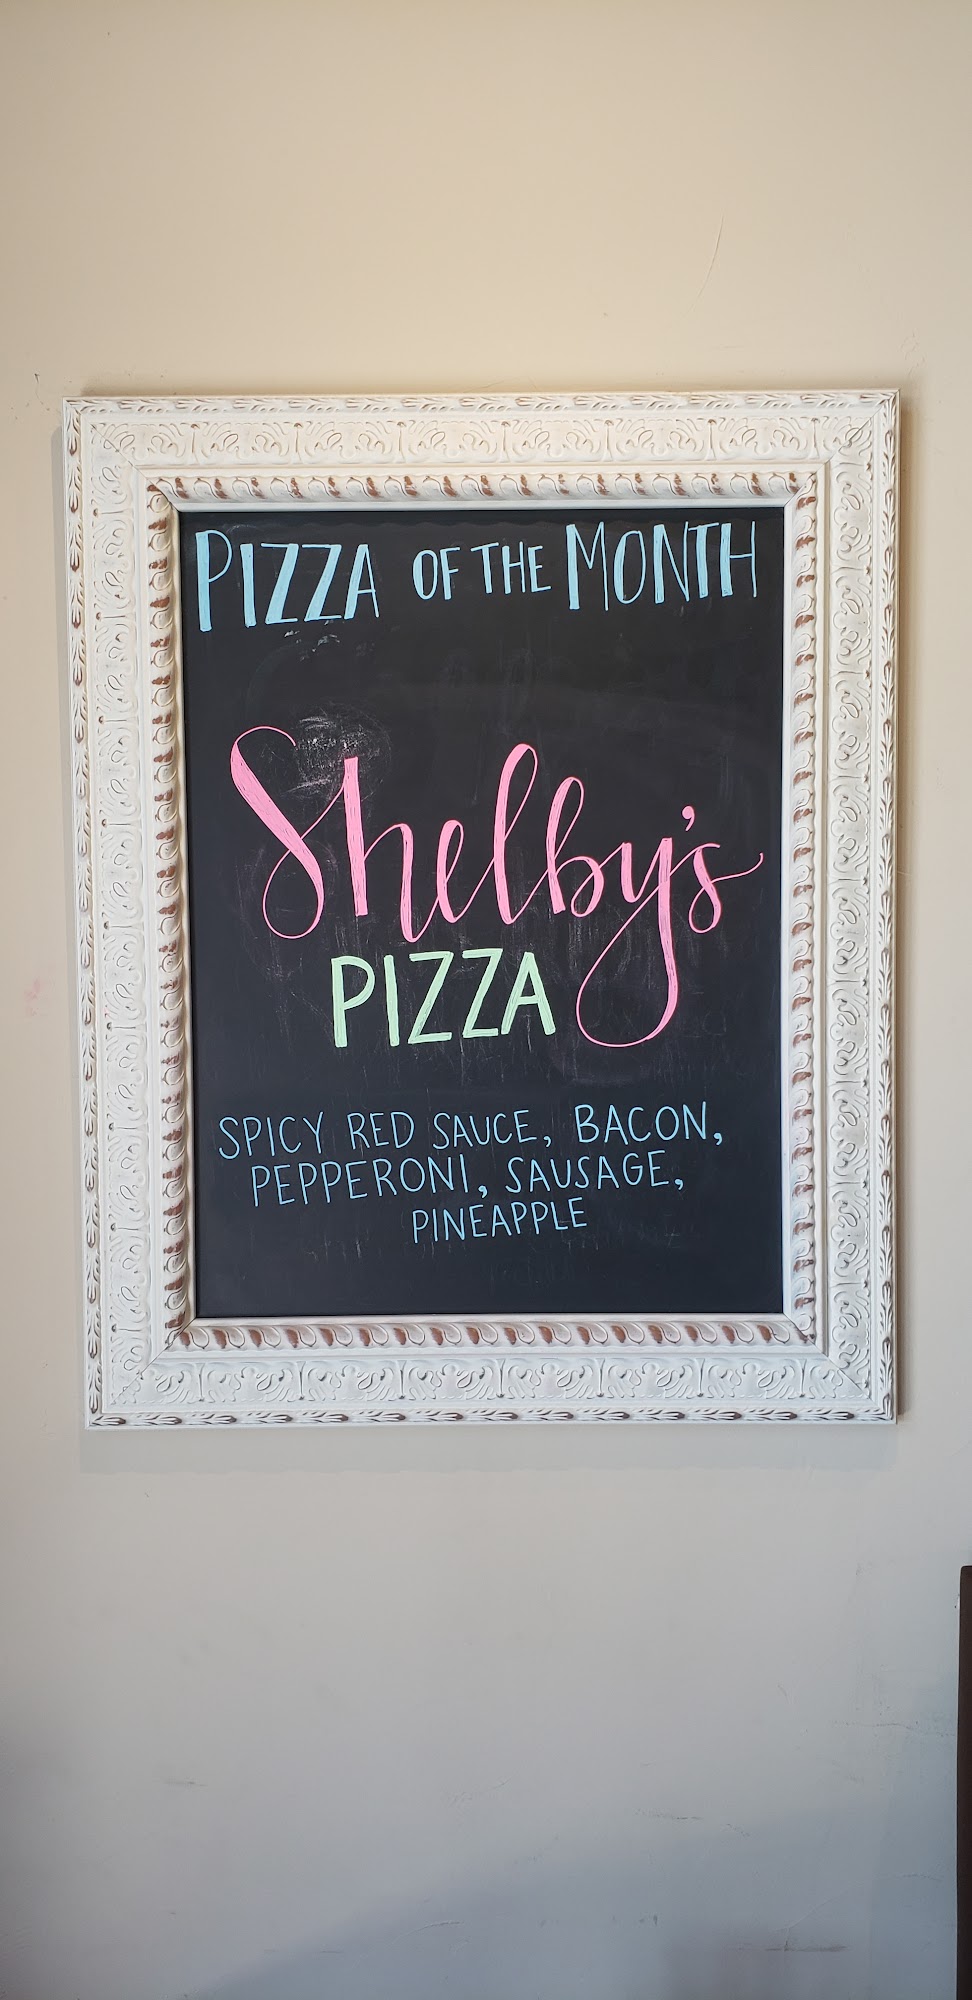 PIZZA OF THE MONTH
Shelby's
PIZZA
SPICY RED SAUCE, BACON,
PEPPERONI, SAUSAGE,
PINEAPPLE